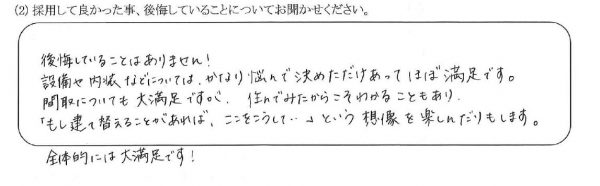 (2) 採用して良かった事、後悔していることについてお聞かせください。
後悔していることはありません!
設備や内装などについては、かなり悩んで決めただけあってほぼ満足です。
間取についても大満足ですが、住んでみたからこそわかることもあり、
「もし建て替えることがあれば、ここをこうして‥」という想像を楽しんだりもします。
全体的には大満足です!